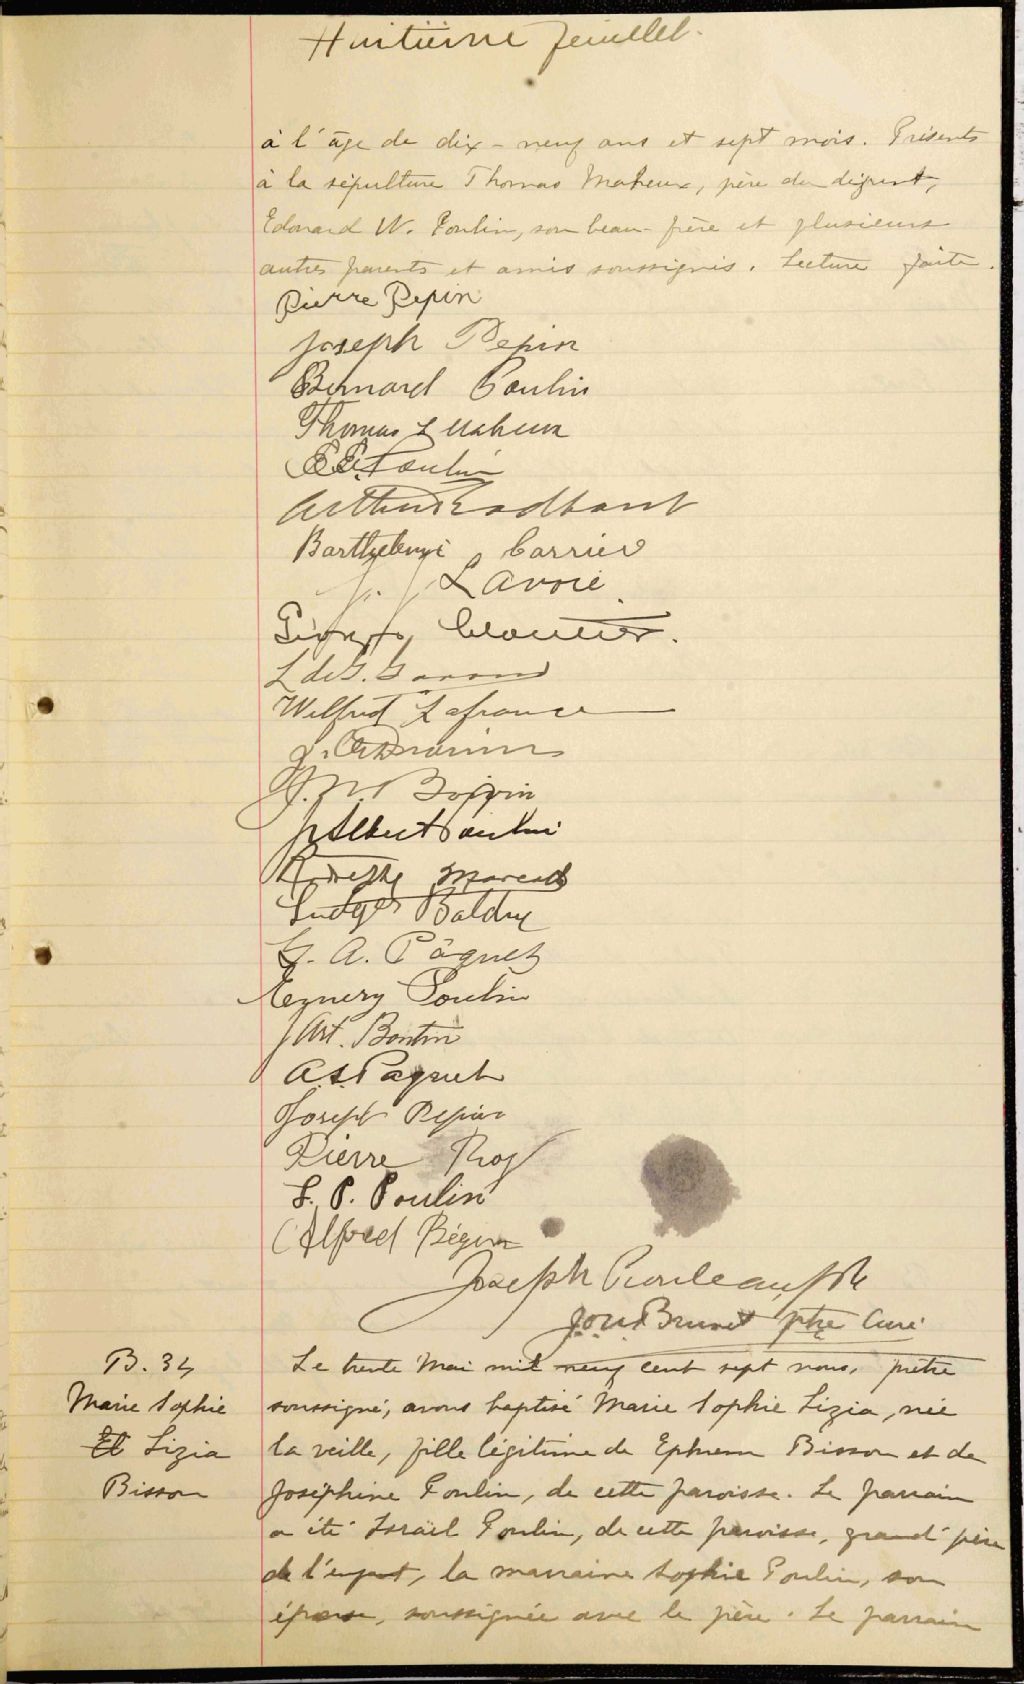 Huitième feuillet.
à l'âge de dix-neuf ans et sept mois. Présents
à la sépulture Thomas Maheux, père du défunt,
Edouard W. Poulin, son beau-frère et plusieurs
autres parents et amis soussignés. Lecture faite.
Pierre Pepin
Joseph Pepin
Bernard Poulin
Thomas Maheux
Poulin
Arthur
Barthelemi Carrier
J. J. Lavoie
Cloutier.
L de G.
Wilfrid Lafrance
J.
J. Boivin
J Albert Poulin
Marcoux
Ludger Balduc
G. A. Pâquet
Poulin
J Art. Boutin
A. S. Paquet
Joseph Pepin
Pierre Roy
L. P. Poulin
Alfred Bégin
Joseph Prouleau, ptre
Brunet ptre Curé
B. 34
Marie Sophie
Lizia
Bisson
Le trente Mai mil neuf cent sept nous, prêtre
soussigné, avons baptisé Marie Sophie Lizia, née
la veille, fille légitime de Ephrem Bisson et de
Joséphine Poulin, de cette paroisse. Le parrain
a été Israël Poulin, de cette paroisse, grand'père
de l'enfant, la marraine Sophie Poulin, son
épouse, soussignée avec le père. Le parrain